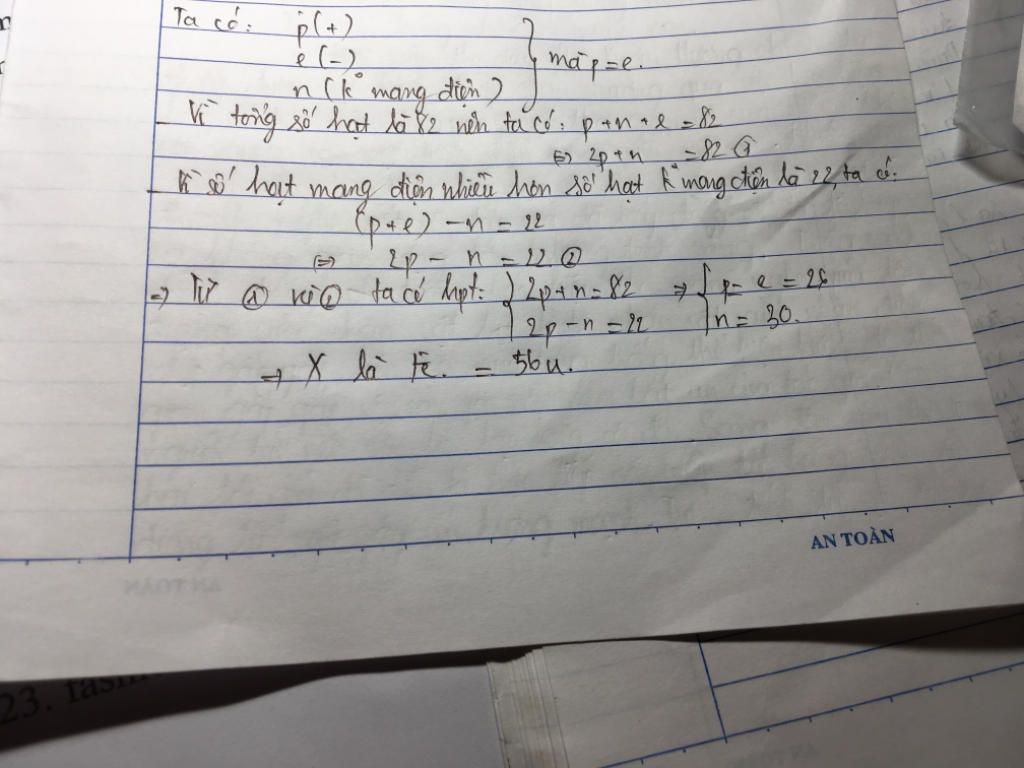 Ta có: p(+)
e(-)
n (k° mang điện) } mà p=e.
- Vì tổng số hạt là 82 nên ta có: p+n+e=82
⇔ 2p+n =82 ①
- Vì số hạt mang điện nhiều hơn số hạt k° mang điện là 22, ta có:
(p+e)-n = 22
⇔ 2p - n = 22 ②
⇒ Từ ① và ② ta có hpt: { 2p+n=82 ⇒ { p= e = 26
2p-n=22 n= 30.
⇒ X là Fe. = 56u.
AN TOÀN
AN TOÀN
23.